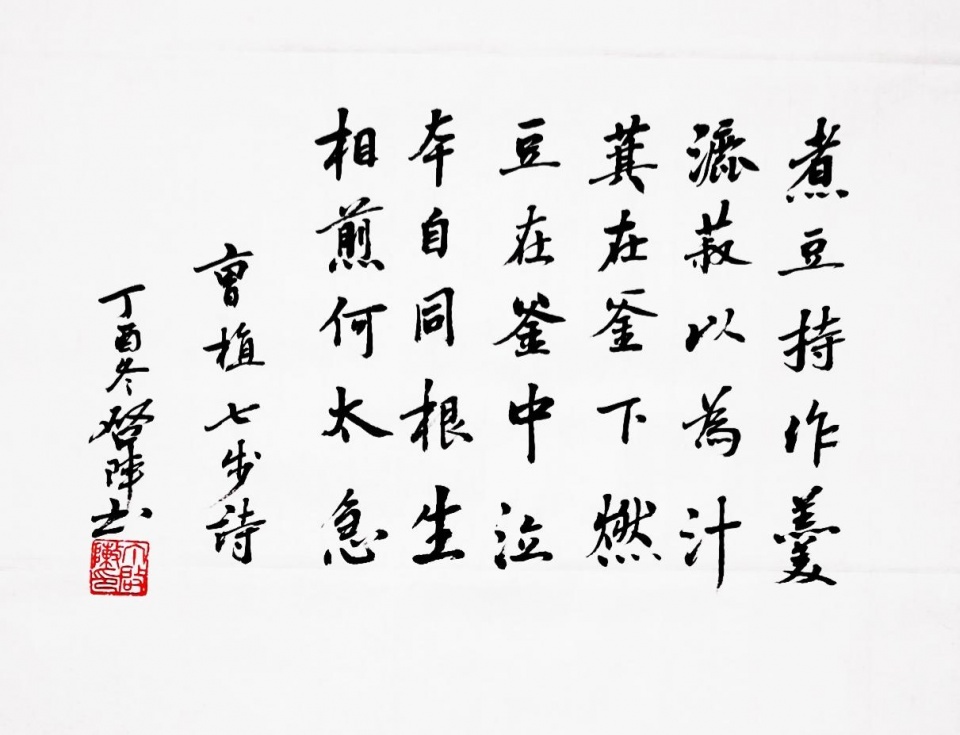 煮豆持作羹
漉菽以為汁
萁在釜下燃
豆在釜中泣
本自同根生
相煎何太急
曹植七步詩
丁酉冬啓陣书